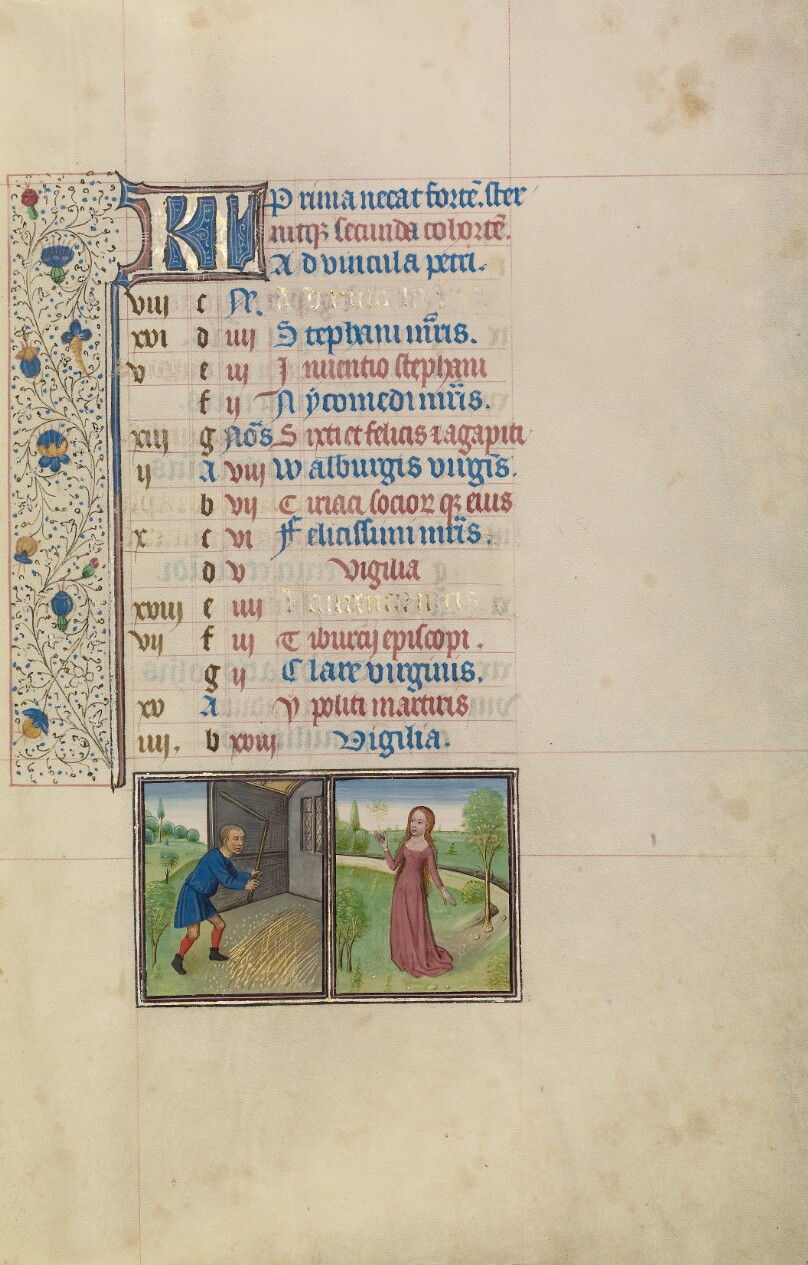 KL P rima necat fortē. ster
nitqȝ secunda cohortē.
A d vincula petri.
viii c N.
xvi d iiii S tephani mr̄is.
v e iii I nuentio stephani
f ii N ycomedi mr̄is.
xiii g Nōs S ixti et felicis ⁊ agapiti
ii A viii W alburgis virgīs.
b vii C iriaci socioꝝ qȝ eius
x c vi F elicissimi mr̄is.
d v Vigilia
xviii e iiii
vii f iii T iburcij episcopi.
g ii C lare virginis.
xv A Y politi martiris
iiii. b xviiii Vigilia.